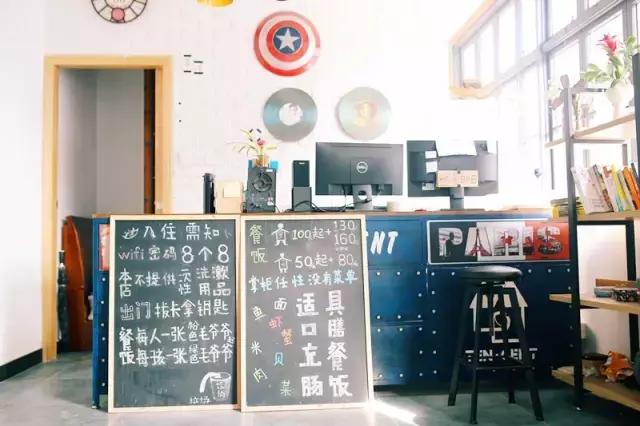 入住需知
wifi密码8个8
本店不提供一次性洗漱用品
出门拔卡拿钥匙
餐每人一张粉色毛爷爷起
饭每孩一张绿色毛爷爷起
餐饭
100起+
130
160
50起+80
掌柜任性没有菜单
具膳餐饭
适口充肠
面
鱼虾蟹
米贝
肉菜
NT
PARIS
DELL